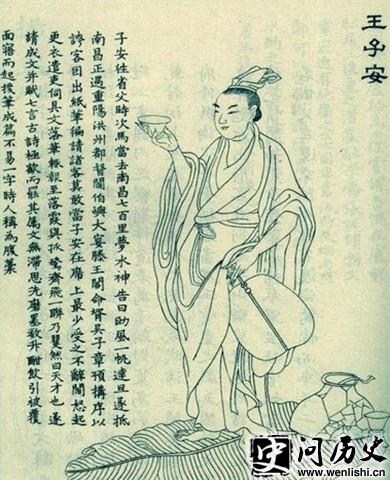 王子安
子安往省父時次馬當去南昌七百里夢水神告曰助風一帆達旦遂抵
南昌正遇重陽洪州都督閻伯嶼大宴滕王閣命壻吳子章預構序以
誇客因出紙筆徧請諸客莫敢當子安在席上最少受之不辭閻怒起
更衣遣吏伺其文落筆輒報至落霞與孤鶩齊飛一聯乃矍然曰天才也遂
請成文并賦七言古詩極歡而罷其属文無滯思先磨墨数升酣飲引被覆
面寤而起援筆成篇不易一字時人稱為腹藁
史 问历史
www.wenlishi.cn